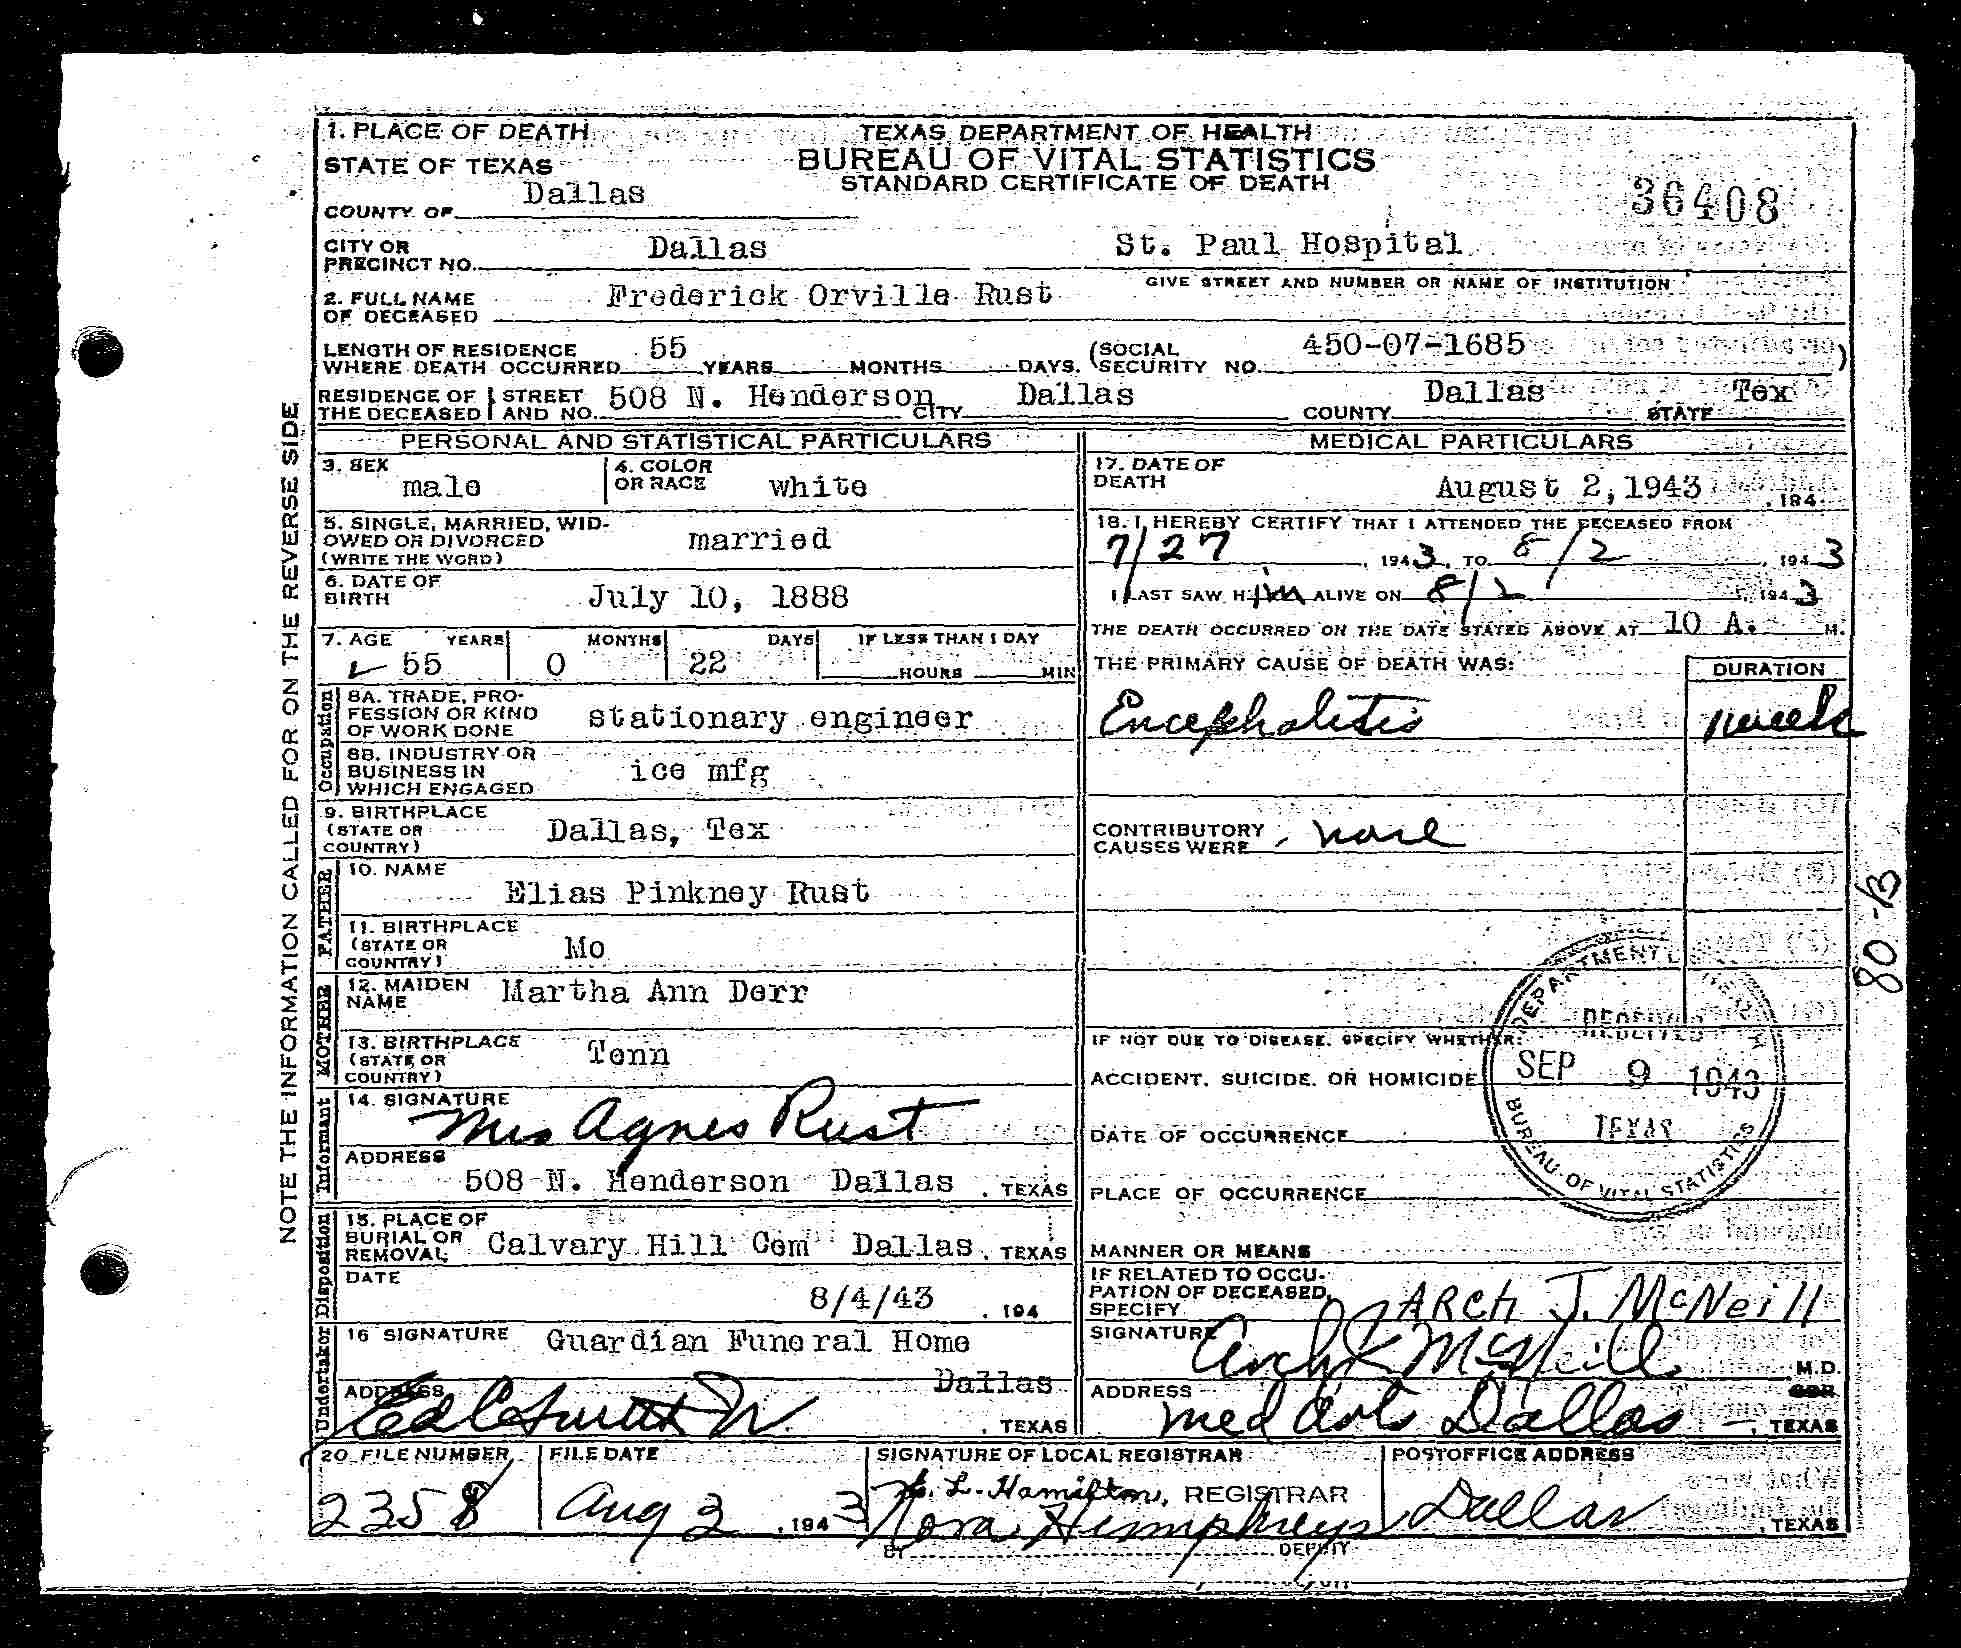 1. PLACE OF DEATH
STATE OF TEXAS
COUNTY OF Dallas
TEXAS DEPARTMENT OF HEALTH
BUREAU OF VITAL STATISTICS
STANDARD CERTIFICATE OF DEATH
36408
CITY OR PRECINCT NO. Dallas
St. Paul Hospital
GIVE STREET AND NUMBER OR NAME OF INSTITUTION
2. FULL NAME OF DECEASED Frederick Orville Rust
LENGTH OF RESIDENCE WHERE DEATH OCCURRED 55 YEARS MONTHS DAYS. (SOCIAL SECURITY NO. 450-07-1685)
RESIDENCE OF THE DECEASED STREET AND NO. 508 N. Henderson CITY Dallas COUNTY Dallas STATE Tex
PERSONAL AND STATISTICAL PARTICULARS
3. SEX male
4. COLOR OR RACE white
5. SINGLE, MARRIED, WIDOWED OR DIVORCED (WRITE THE WORD) married
6. DATE OF BIRTH July 10, 1888
7. AGE YEARS MONTHS DAYS IF LESS THAN 1 DAY
55 0 22 HOURS MIN
Occupation
8A. TRADE, PROFESSION OR KIND OF WORK DONE stationary engineer
8B. INDUSTRY OR BUSINESS IN WHICH ENGAGED ice mfg
9. BIRTHPLACE (STATE OR COUNTRY) Dallas, Tex
FATHER
10. NAME Elias Pinkney Rust
11. BIRTHPLACE (STATE OR COUNTRY) Mo
MOTHER
12. MAIDEN NAME Martha Ann Derr
13. BIRTHPLACE (STATE OR COUNTRY) Tenn
Informant
14. SIGNATURE Mrs Agnes Rust
ADDRESS 508 N. Henderson Dallas, TEXAS
Disposition
15. PLACE OF BURIAL OR REMOVAL Calvary Hill Cem Dallas, TEXAS
DATE 8/4/43, 194
Undertaker
16 SIGNATURE Guardian Funeral Home
Dallas
ADDRESS, TEXAS
MEDICAL PARTICULARS
17. DATE OF DEATH August 2, 1943, 194
18. I HEREBY CERTIFY THAT I ATTENDED THE DECEASED FROM
7/27, 1943, TO 8/2, 1943
I LAST SAW HIM ALIVE ON 8/2, 1943
THE DEATH OCCURRED ON THE DATE STATED ABOVE AT 10 A. M.
THE PRIMARY CAUSE OF DEATH WAS: DURATION
Encephalitis 1 week
CONTRIBUTORY CAUSES WERE none
IF NOT DUE TO DISEASE, SPECIFY WHETHER:
ACCIDENT, SUICIDE, OR HOMICIDE
DATE OF OCCURRENCE
PLACE OF OCCURRENCE
MANNER OR MEANS
IF RELATED TO OCCUPATION OF DECEASED, SPECIFY
ARCH J. McNeill
SIGNATURE Arch J McNeill M.D.
ADDRESS Med Arts Dallas, TEXAS
DEPARTMENT OF HEALTH
RECEIVED
SEP 9 1943
TEXAS
BUREAU OF VITAL STATISTICS
20 FILE NUMBER 2358
FILE DATE Aug 3, 1943
SIGNATURE OF LOCAL REGISTRAR
L. Hamilton, REGISTRAR
Nora Hemphreys
BY DEPUTY
POSTOFFICE ADDRESS Dallas, TEXAS
NOTE THE INFORMATION CALLED FOR ON THE REVERSE SIDE
80-B